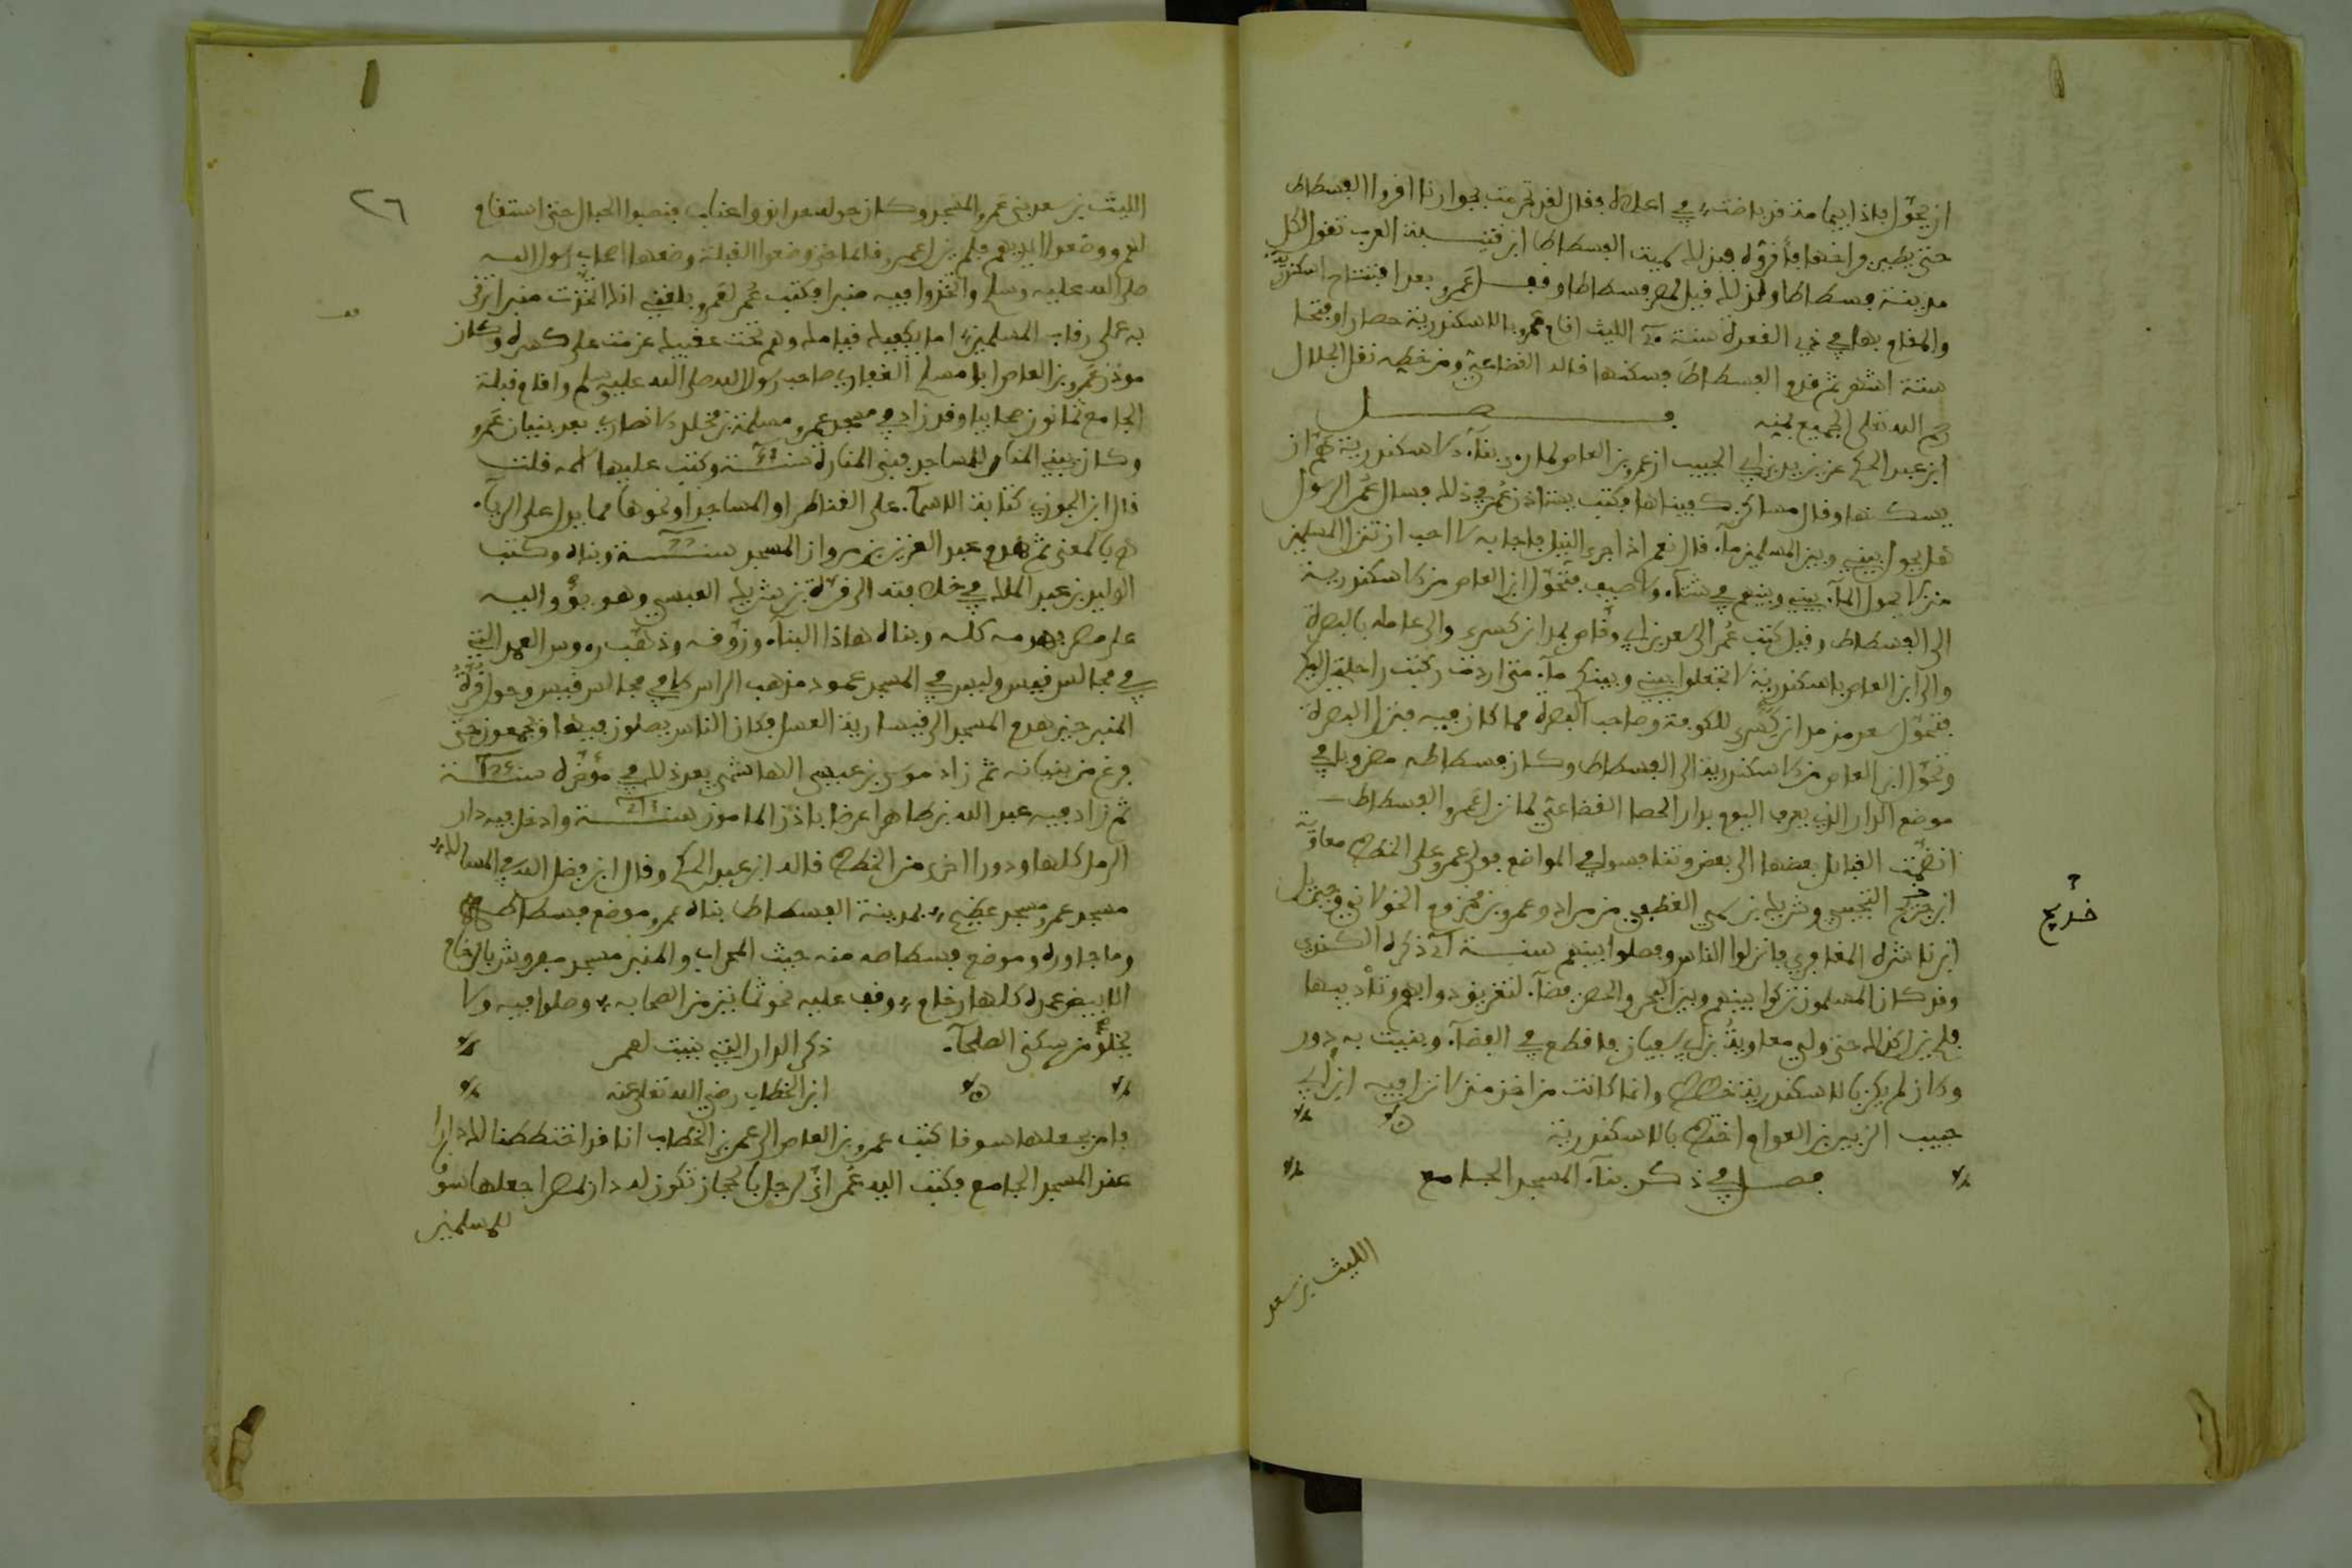 ان يحوّل فإذا بيمامة قد باضت في اعلاه فقال لقد تحرمت بجوارنا اقروا الفسطاط
حتى يطير فراخها فأقرّوه فبذلك سميت الفسطاط ابن قتيبة العرب تقول لكل
مدينة فسطاط ولذلك قيل لمصر فسطاط وقفل عمرو بعد افتتاح اسكندرية
والمقام بها في ذي القعدة سنة الليث اقام عمرو بالاسكندرية حصارا وفتحا
ستة اشهر ثم قدم الفسطاط فسكنها قاله القضاعي ومن خطه نقل الجلال
رحم الله تعلى الجميع بمنه فصل
ابن عبد الحكم عن يزيد بن ابي الحبيب ان عمرو بن العاص لما را بناء الاسكندرية همّ ان
يسكنها وقال مساكن كفيناها فكتب يستاذن عمر في ذلك فسال عمر الرسول
هل يحول بيني وبين المسلمين ماء قال نعم اذا جرى النيل فاجابه لا احب ان تنزل المسلمين
منزلا يحول الماء بيني وبينهم في شتاء ولا صيف فتحوّل ابن العاص من الاسكندرية
الى الفسطاط وقيل كتب عمر الى سعد بن ابي وقاص بمدائن كسرى والى عامله بالبصرة
والى ابن العاص باسكندرية لا تجعلوا بيني وبينكم ماء متى اردت ركبت راحلتي اليكم
فتحوّل سعد من مدائن كسرى للكوفة وصاحب البصرة مما كان فيه فنزل البصرة
وتحوّل ابن العاص من الاسكندرية الى الفسطاط وكان فسطاطه مضروبا في
موضع الدار الذي يعرف اليوم بدار الحصا القضاعي لما نزل عمرو الفسطاط
انضمت القبائل بعضها الى بعض وتنافسوا في المواضع فولى عمرو على الخطط معاوية
ابن حديج التجيبي وشريك بن سمي الغطيفي من مراد وعمرو بن مخزوم الخولاني وحيويل
ابن ناشرة المغافري فانزلوا الناس وفصلوا بينهم سنة ذكره الكندي
وقد كان المسلمون تركوا بينهم وبين البحر والحصن فضاء لتفريق دوابهم وتأديبها
فلم يزل كذلك حتى ولي معاوية بن ابي سفيان فاقطع في الفضاء وبنيت به دور
وكان لم يكن بالاسكندرية خطط وانما كانت من اخذ منزلا نزل فيه ابن ابي
حبيب الزبير بن العوام اختط بالاسكندرية
فصل في ذكر بناء المسجد الجامع
خديج
الليث بن سعد
٢٦
الليث بن سعد بنى عمرو المسجد وكان حوله حدائق واعناب فنصبوا الحبال حتى استقام
لهم ووضعوا ايديهم فلم يزل عمرو قائما حتى وضعوا القبلة وضعها اصحاب رسول الله
صلى الله عليه وسلم واتخذوا فيه منبرا فكتب عمر لعمرو بلغني انك اتخذت منبرا ترقى
به على رقاب المسلمين اما يكفيك قيامك وهم تحت عقبيك عزمت عليك كسره وكان
موذن عمرو بن العاص ابا مسلم الغفاري صاحب رسول الله صلى الله عليه وسلم واقام قبلة
الجامع ثمانون صحابيا وقد زاد في مسجد عمرو مسلمة بن مخلد الانصاري بعد بنيان عمرو
وكان بنى المنار للمساجد فبنى المنارة سنة وكتب عليها اسمه قلت
قال ابن الجوزي كتابة الاسماء على القناطر او المساجد او نحوها مما يدل على الرياء
بالمعنى ثم هدم عبد العزيز بن مروان المسجد سنة وبناه وكتب
الوليد بن عبد الملك في خلافته الى قرة بن شريك العبسي وهو يوم واليه
على مصر فهدمه كله وبناه هاذا البناء وزوّقه وذهّب رءوس العمد التي
في مجالس قيس وليس في المسجد عمود مذهب الراس الا في مجالس قيس وحوّل قرة
المنبر حين هدم المسجد الى قيسارية العسل فكان الناس يصلون فيها ويجمعون حتى
فرغ من بنيانه ثم زاد موسى بن عيسى الهاشمي بعد ذلك في مؤخره سنة
ثم زاد فيه عبد الله بن طاهر عرضا باذن المامون سنة وادخل فيه دار
الرمل كلها ودورا اخرى من الخطط قاله ابن عبد الحكم وقال ابن فضل الله في المسالك
مسجد عمرو مسجد عظيم بمدينة الفسطاط بناه عمرو موضع فسطاطه
وما جاوره وموضع فسطاطه منه حيث المحراب والمنبر مسجد مفروش بالرخام
الابيض عمده كلها رخام وقف عليه نحو ثمانين من الصحابه وصلوا فيه ولا
يخلو من سكنى الصلحاء ذكر الدار التي بنيت لعمر
ابن الخطاب رضي الله تعلى عنه
فامر بجعلها سوقا كتب عمرو بن العاص الى عمر بن الخطاب انا قد اختططنا لك دارا
عند المسجد الجامع فكتب اليه عمر انّى لرجل بالحجاز تكون له دار بمصر اجعلها سوق
للمسلمين